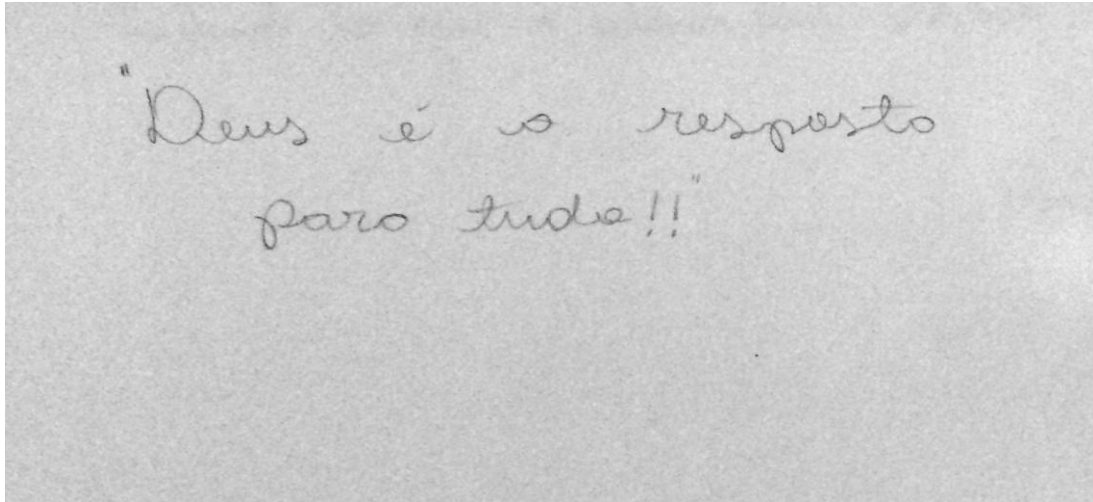 "Deus é a resposta
para tudo!!"